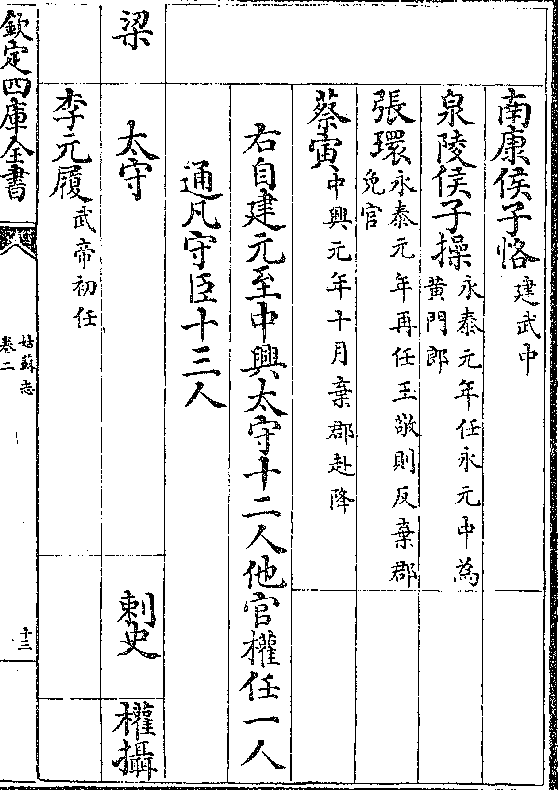 南康侯子恪建武中
泉陵侯子操永泰元年任永元中為
黄門郎
張環永泰元年再任王敬則反棄郡
免官
蔡寅中興元年十月棄郡赴降
右自建元至中興太守十二人他官權任一人
通凡守臣十三人
梁 太守 刺史 權攝
李元履武帝初任
欽定四庫全書
姑蘇志
卷二
十三